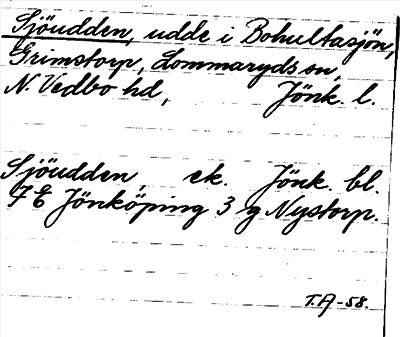 Sjöudden, udde i Bohultasjön,
Grimstorp, Lommaryds sn,
N. Vedbo hd, Jönk. l.
Sjöudden, ek. Jönk. bl.
7E Jönköping 3 g Nystorp.
T.A-58.